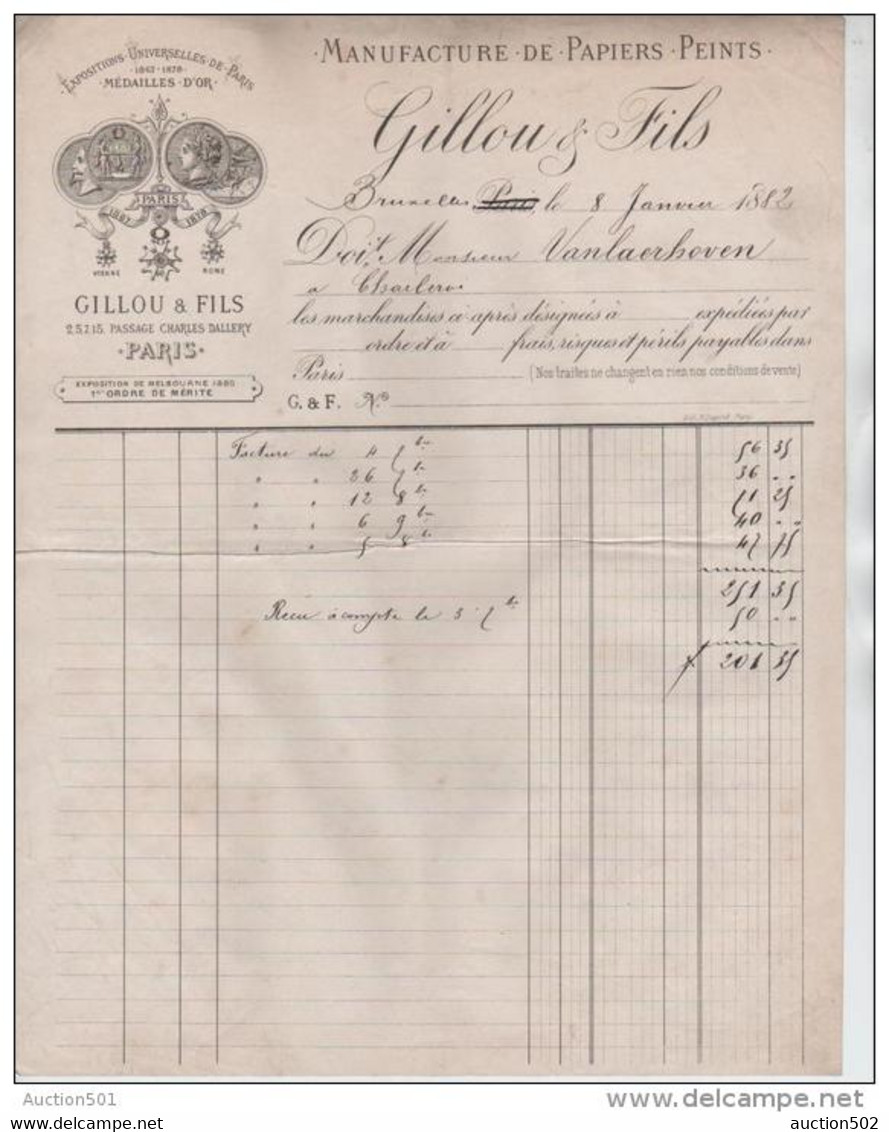 EXPOSITIONS·UNIVERSELLES·DE·PARIS
·1867·1878·
·MÉDAILLES·D'OR·
PARIS
1867 1878
VIENNE ROME
GILLOU & FILS
2.5.7.15. PASSAGE CHARLES DALLERY
·PARIS·
EXPOSITION DE MELBOURNE 1880
1er ORDRE DE MÉRITE
·MANUFACTURE·DE·PAPIERS·PEINTS·
Gillou & Fils
Bruxelles Paris, le 8 Janvier 1882
Doit Monsieur Vanlaerhoven
a Charleroi
les marchandises ci-après désignées à expédiées par
ordre et à frais, risques et périls payables dans
Paris (Nos traites ne changent en rien nos conditions de vente)
G. & F. No
Facture du 4 7bre 56 35
" " 26 7bre 36 " "
" " 12 8bre 71 25
" " 6 9bre 40 " "
" " 5 8bre 47 75
251 35
Recu à compte le 3 7bre 50 " "
201 35
Auction501
auction501
http://www.delcampe.net
auction502